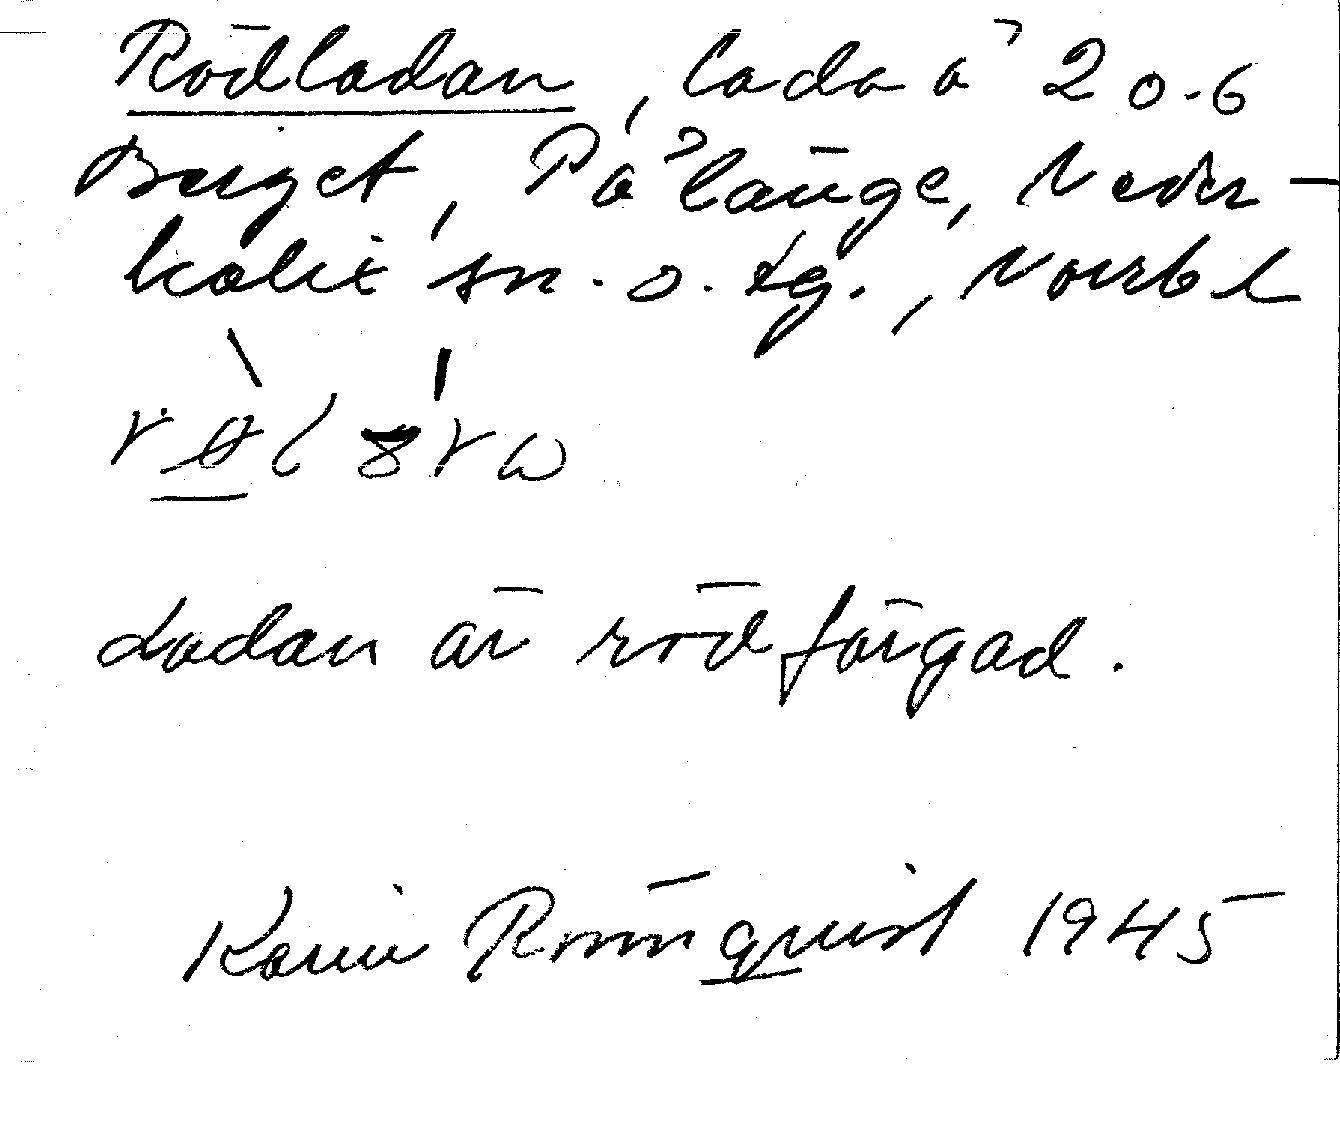 Rödladan, lada å 20.6
Berget, Pålänge, Neder-
kalix sn. o. tg., Norrb l
Ladan är rödfärgad.
Karin Rönnquist 1945